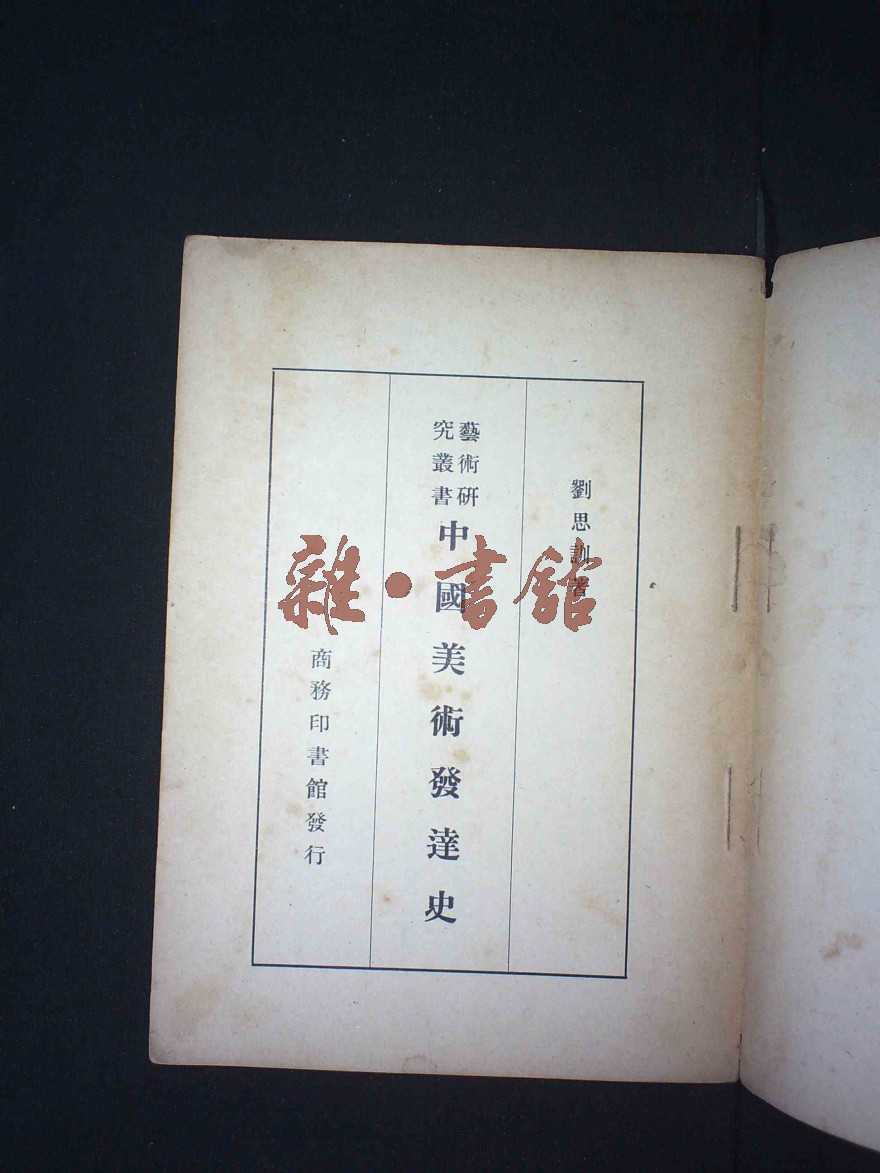 劉思訓著
藝術研
究叢書
中國美術發達史
商務印書館發行
雜·書館